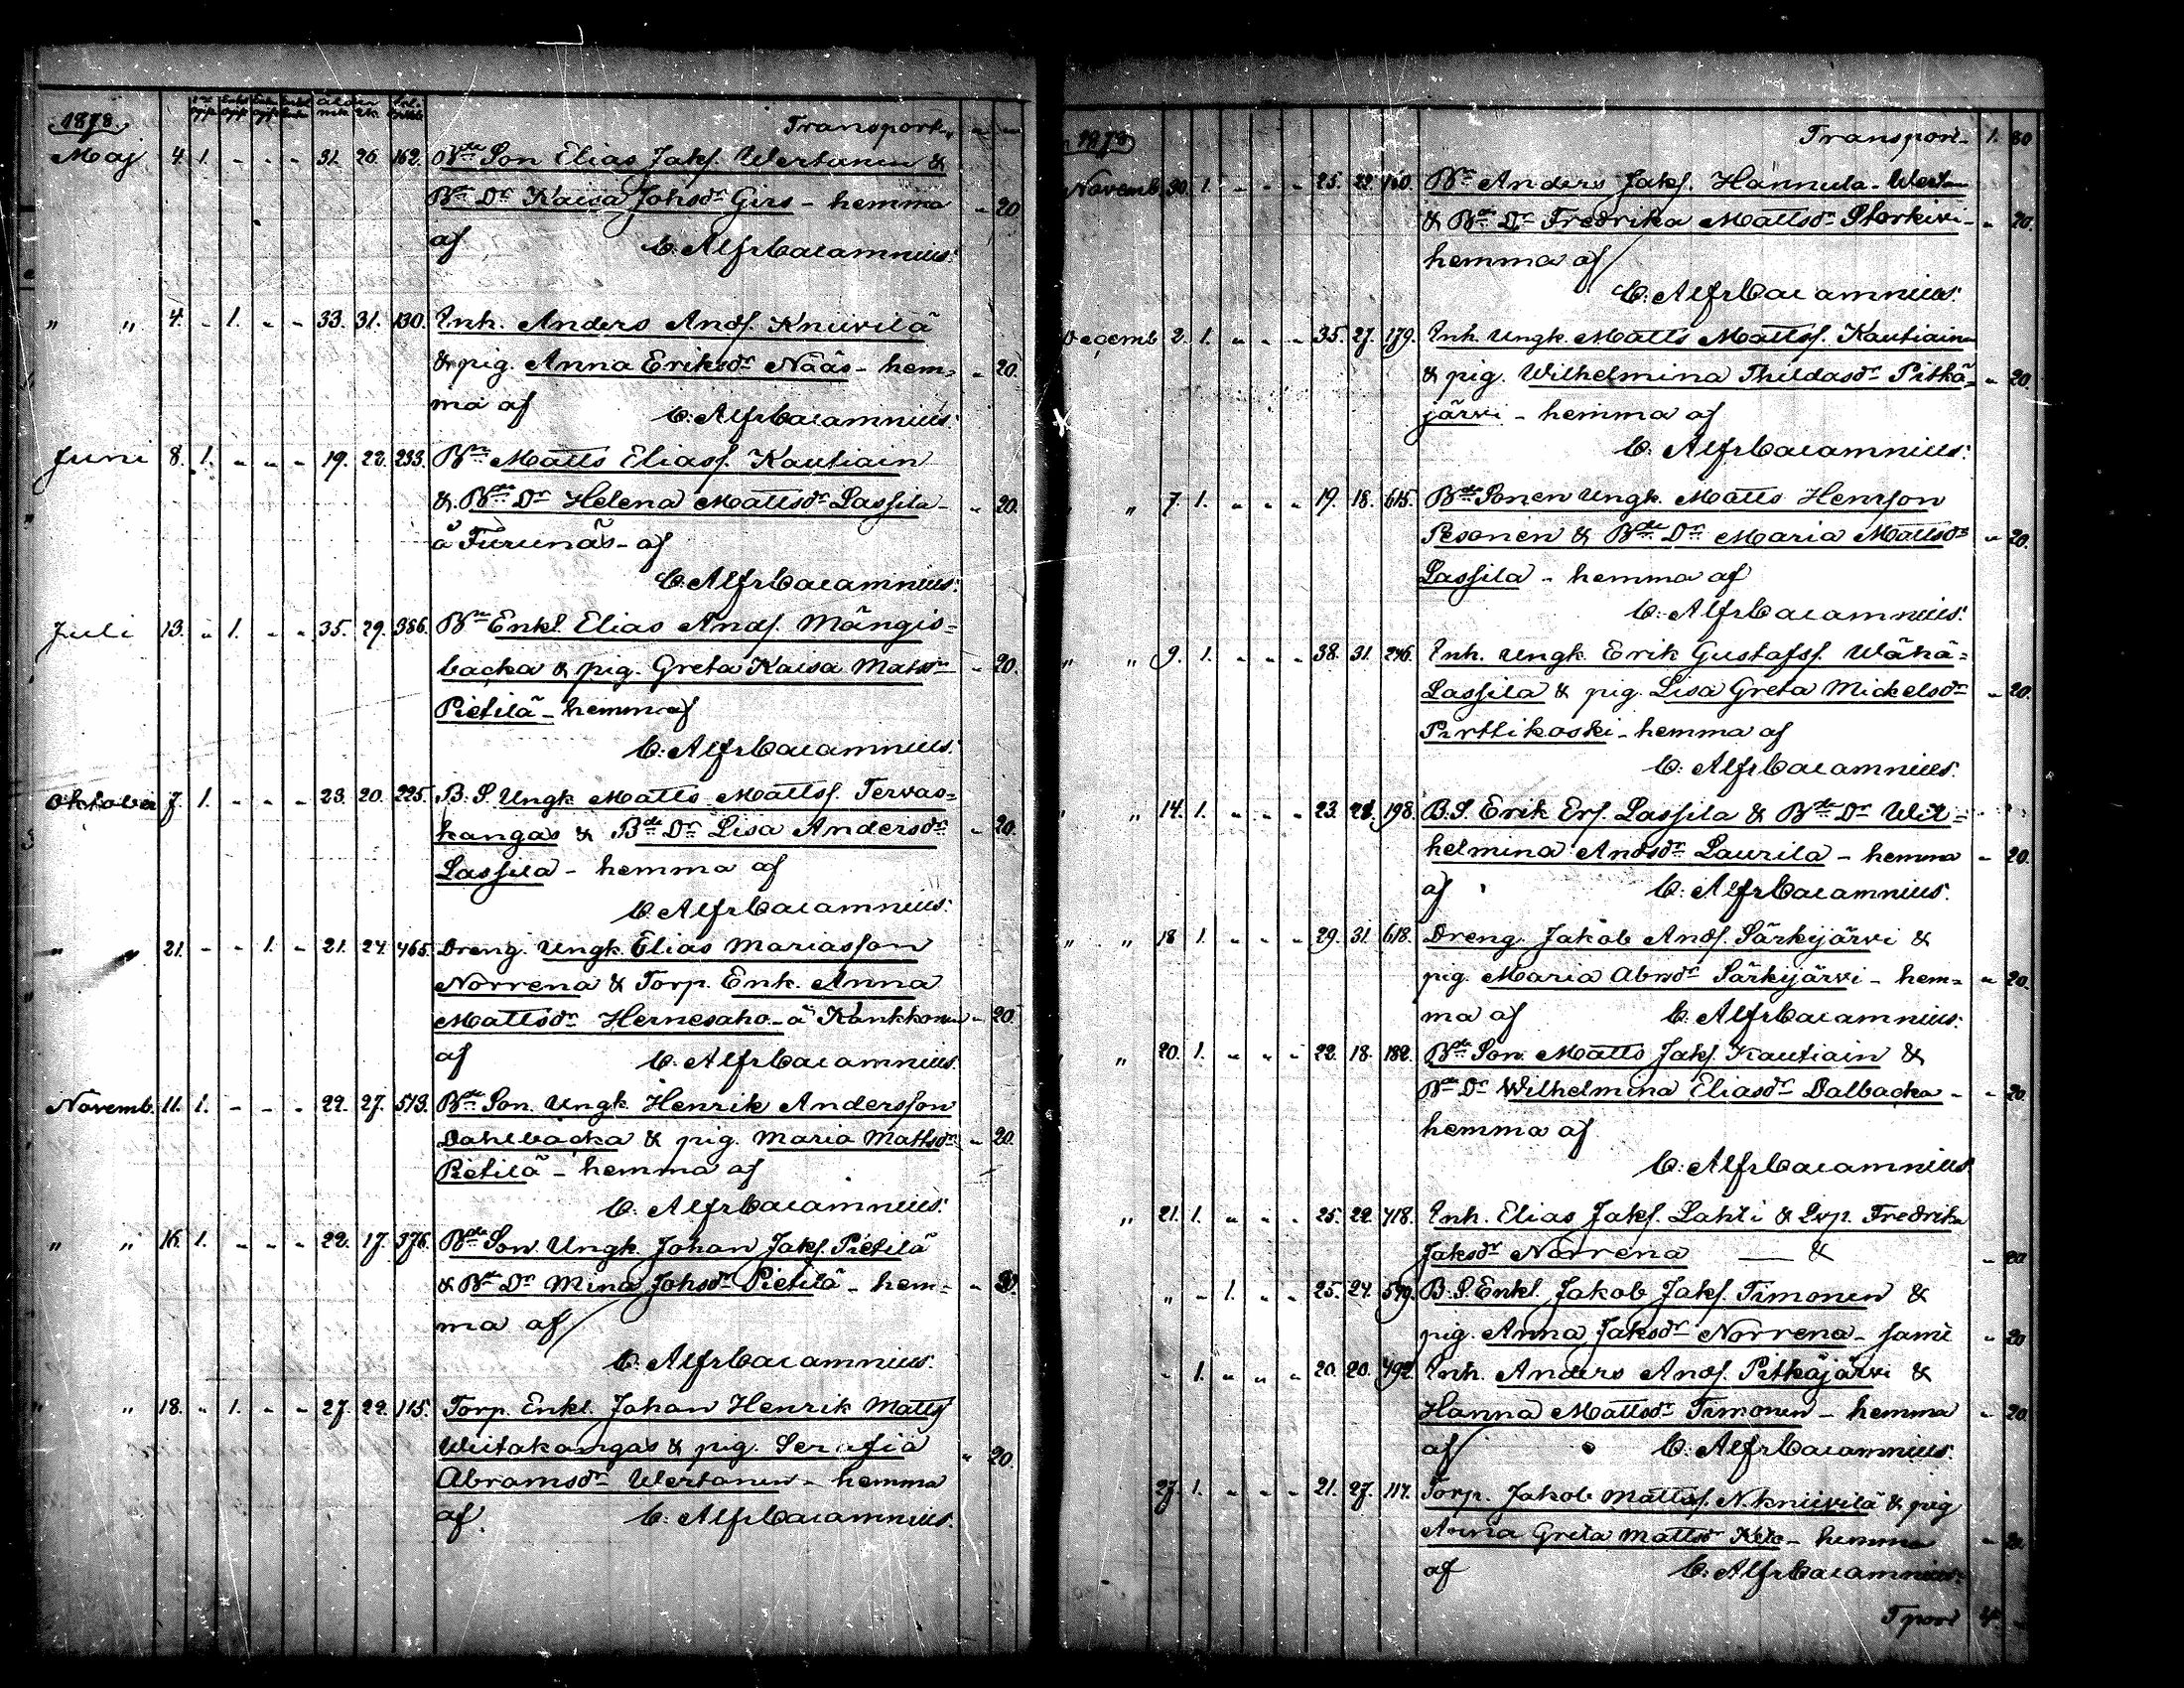 1878. Transport „ „
Maj 4. 1. - - - 31. 26. 162. Bde Son Elias Jakf. Wertanen &
Bde Dr Kaisa Johsdr Girs - hemma - 20
af C. Alfr Calamnius.
„ „ 4. - 1. - - 33. 31. 130. Inh. Anders Andf. Kniivilä
& pig. Anna Eriksdr Nääs - hem= - 20.
ma af C. Alfr Calamnius.
Juni 8. 1. - - - 19. 22. 233. Bdn Matts Eliasf. Kautiain
& Bde Dr Helena Mattsdr Lassila - - 20.
å Furunäs - af
C. Alfr Calamnius.
Juli 13. - 1. - - 35. 29. 386. Bdn Enkl. Elias Andf. Mångis=
backa & pig. Greta Kaisa Matsdr - 20.
Pietilä - hemma af
C. Alfr Calamnius.
Oktober 7. 1. - - - 23. 20. 225. B. S. Ungk Matts Mattsf. Terwas=
kangas & Bde Dr Lisa Andersdr - 20.
Lassila - hemma af
C. Alfr Calamnius.
„ „ 21. - - 1. - 21. 27. 465. Dreng. Ungk. Elias Mariasson
Norrena & Torp. Enk. Anna
Mattsdr Hernesaho - å Kankkonen - 20.
af C. Alfr Calamnius.
Novemb. 11. 1. - - - 22. 27. 573. Bde Son Ungk. Henrik Andersson
Dahlbacka & pig. Maria Mattsdr - 20.
Pietilä - hemma af
C. Alfr Calamnius.
„ „ 16. 1. - - - 22. 17. 376. Bde Son Ungk. Johan Jakf. Pietilä
& Bde Dr Mina Johsdr Pietilä - hem= - 20.
ma af
C. Alfr Calamnius.
„ „ 18. - 1. - - 27. 22. 115. Torp. Enkl. Johan Henrik Mattsf
Wiitakangas & pig. Serafia - 20.
Abramsdr Wertanen - hemma
af. C. Alfr Calamnius.
1878 Transport 1. 80
Novemb. 30. 1. - - - 25. 22. 160. Bdn Anders Jakf. Hannula-
& Bde Dr Fredrika Mattsdr Storkivi - - 20.
hemma af
C. Alfr Calamnius.
Decemb 2. 1. - - - 35. 27. 179. Inh. Ungk. Matts Mattsf. Kautiainen
& pig. Wilhelmina Thildasdr Pitkä= - 20.
järvi - hemma af
C. Alfr Calamnius.
„ 7. 1. - - - 19. 18. 615. Bde Sonen Ungk. Matts Henrson
Pesonen & Bde Dr Maria Mattsdr - 20.
Lassila - hemma af
C. Alfr Calamnius.
„ „ 9. 1. - - - 38. 31. 246. Inh. Ungk. Erik Gustafsf. Wähä=
Lassila & pig. Lisa Greta Mickelsdr - 20.
Pirttikoski - hemma af
C. Alfr Calamnius.
„ „ 14. 1. - - - 23. 198. B. S. Erik Erf. Lassila & Bde Dr Wil=
helmina Andsdr Laurila - hemma - 20.
af C. Alfr Calamnius.
„ „ 18 1. - - - 29. 31. 618. Dreng. Jakob Andf. Särkijärvi &
pig. Maria Abrsdr Särkijärvi - hem= - 20.
ma af C. Alfr Calamnius.
„ 20. 1. - - - 22. 18. 182. Bde Son. Matts Jakf. Kautiain &
Bde Dr Wilhelmina Eliasdr Dalbacka - - 20.
hemma af
C. Alfr Calamnius
„ 21. 1. - - - 25. 22. 718. Inh. Elias Jakf. Lahti & Fredrika
Jaksdr Norrena — & - 20
„ - 1. - - 25. 27. 579. B. S. Enkl. Jakob Jakf. Timonen &
pig. Anna Jaksdr Norrena - samt - 20
- 1. - - - 20. 20. 792. Inh. Anders Andf. Pitkäjärvi &
Hanna Mattsdr Timonen - hemma - 20.
af C. Alfr Calamnius.
27. 1. - - - 21. 27. 117. Torp. Jakob Mattsf. N. Kniivilä & pig
Anna Greta Mattsdr - hemma - 20
af C. Alfr Calamnius.
Tport 4. -